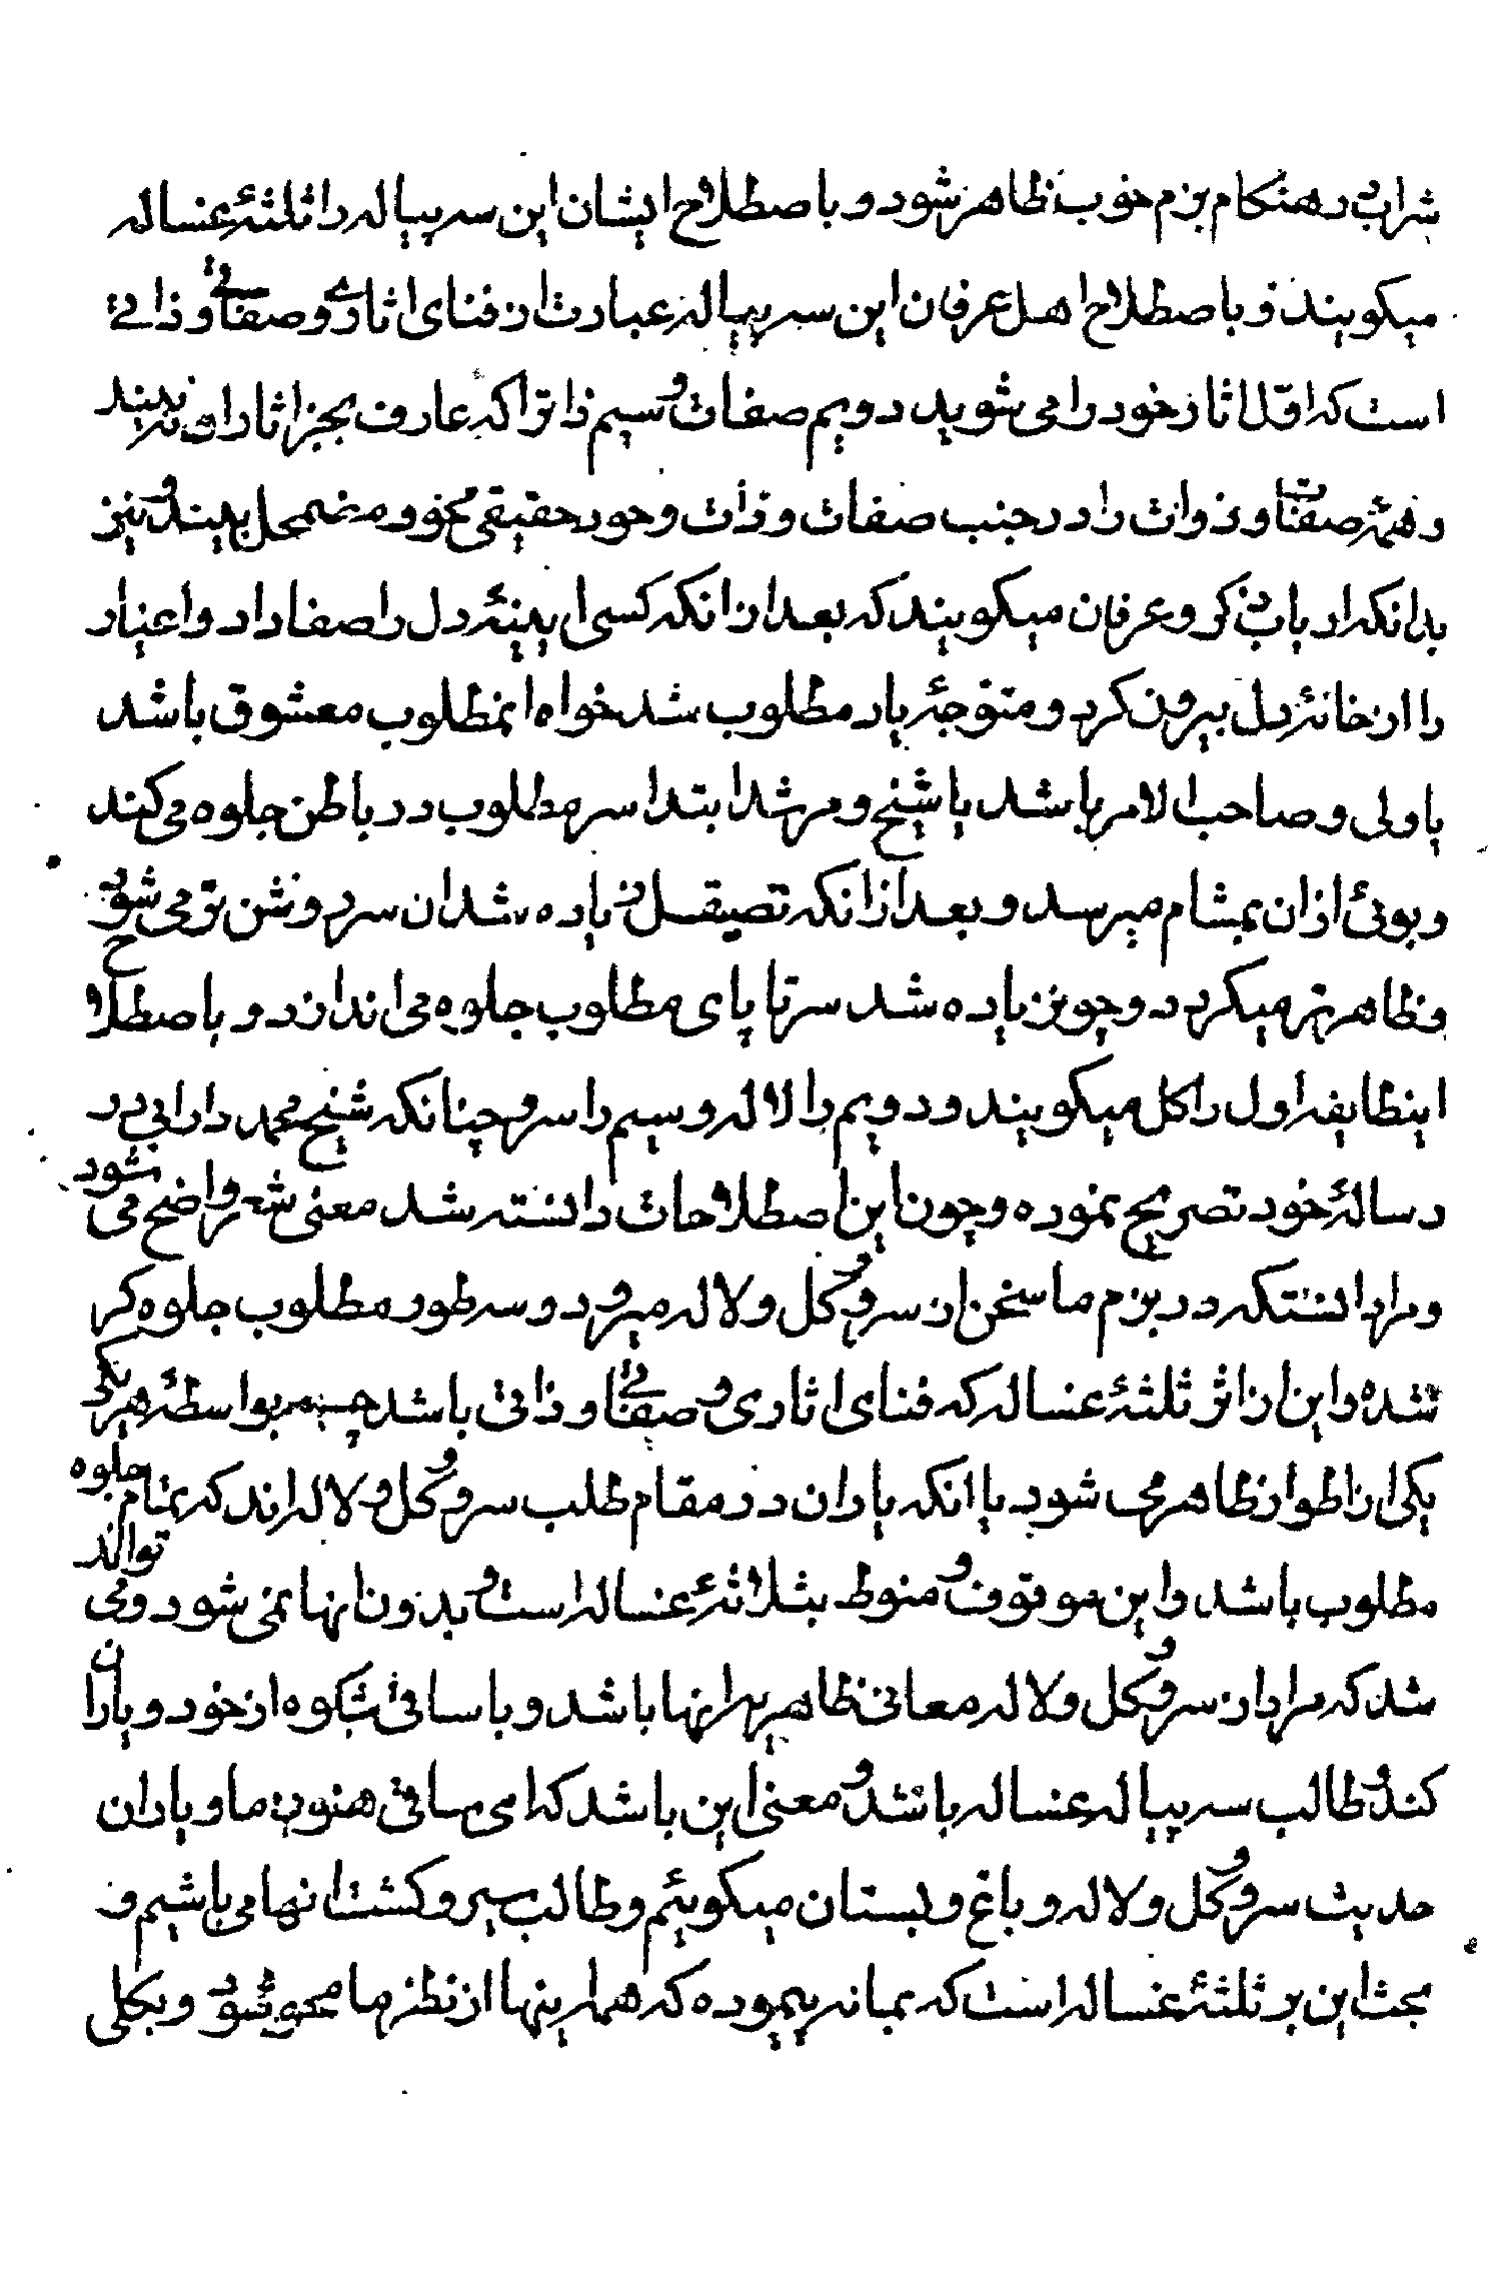 شرابی در هنکام بزم خوب ظاهر شود و باصطلاح ایشان این سه پیاله را ثلثهٔ غساله
میکویند و باصطلاح اهل عرفان این سه پیاله عبارت از فنای اثاری و صفاتی و ذاتی
است که اول اثار خود را می شوید دویم صفات و سیم ذاتراکه عارف بجز اثار او نه بیند
و همهٔ صفات و ذوات را در جنب صفات و ذات وجود حقیقی محو و مضمحل بیند و نیز
بدانکه ارباب ذکر و عرفان میکویند که بعد از انکه کسی ایینهٔ دل را صفا داد و اغیار
را از خانهٔ دل بیرون کرد و متوجهٔ یار مطلوب شد خواه انمطلوب معشوق باشد
یا ولی و صاحب الامر باشد یا شیخ و مرشد ابتدا سر مطلوب در باطن جلوه می کند
و بوئی از ان بمشام میرسد و بعد از انکه تصیقل زیاده شد ان سر روشن تر می شود
و ظاهر تر میکردد و چون زیاده شد سر تا پای مطلوب جلوه می اندازد و باصطلاح
اینطایفه اول را کل میکویند و دویم را لاله و سیم را سرو چنانکه شیخ محمد دارابی در
رسالهٔ خود تصریح نموده و چون این اصطلاحات دانسته شد معنی شعر واضح می شود
و مراد انستکه در بزم ما سخن از سرو و کل و لاله میرود و سه طور مطلوب جلوه کر
شده و این از اثر ثلثهٔ غساله که فنای اثاری و صفاتی و ذاتی باشد چه بواسطهٔ هریک
یکی از اطوار ظاهر می شود یا انکه یاران در مقام طلب سرو و کل و لاله اند که تمام جلوه
مطلوب باشد و این موقوف و منوط بثلاثهٔ غساله است و بدون انها نمی شود و می تواند
شد که مراد از سرو و کل و لاله معانی ظاهریه انها باشد و با ساقی شکوه از خود و یاران
کند و طالب سه پیاله غساله باشد و معنی این باشد که ای ساقی هنوز ما و یاران
حدیث سرو و کل و لاله و باغ و بستان میکوئیم و طالب سیر و کشت انها می باشیم و
بحث این بر ثلثهٔ غساله است که بما نه پیموده که همه اینها از نظر ما محو شود و بکلی